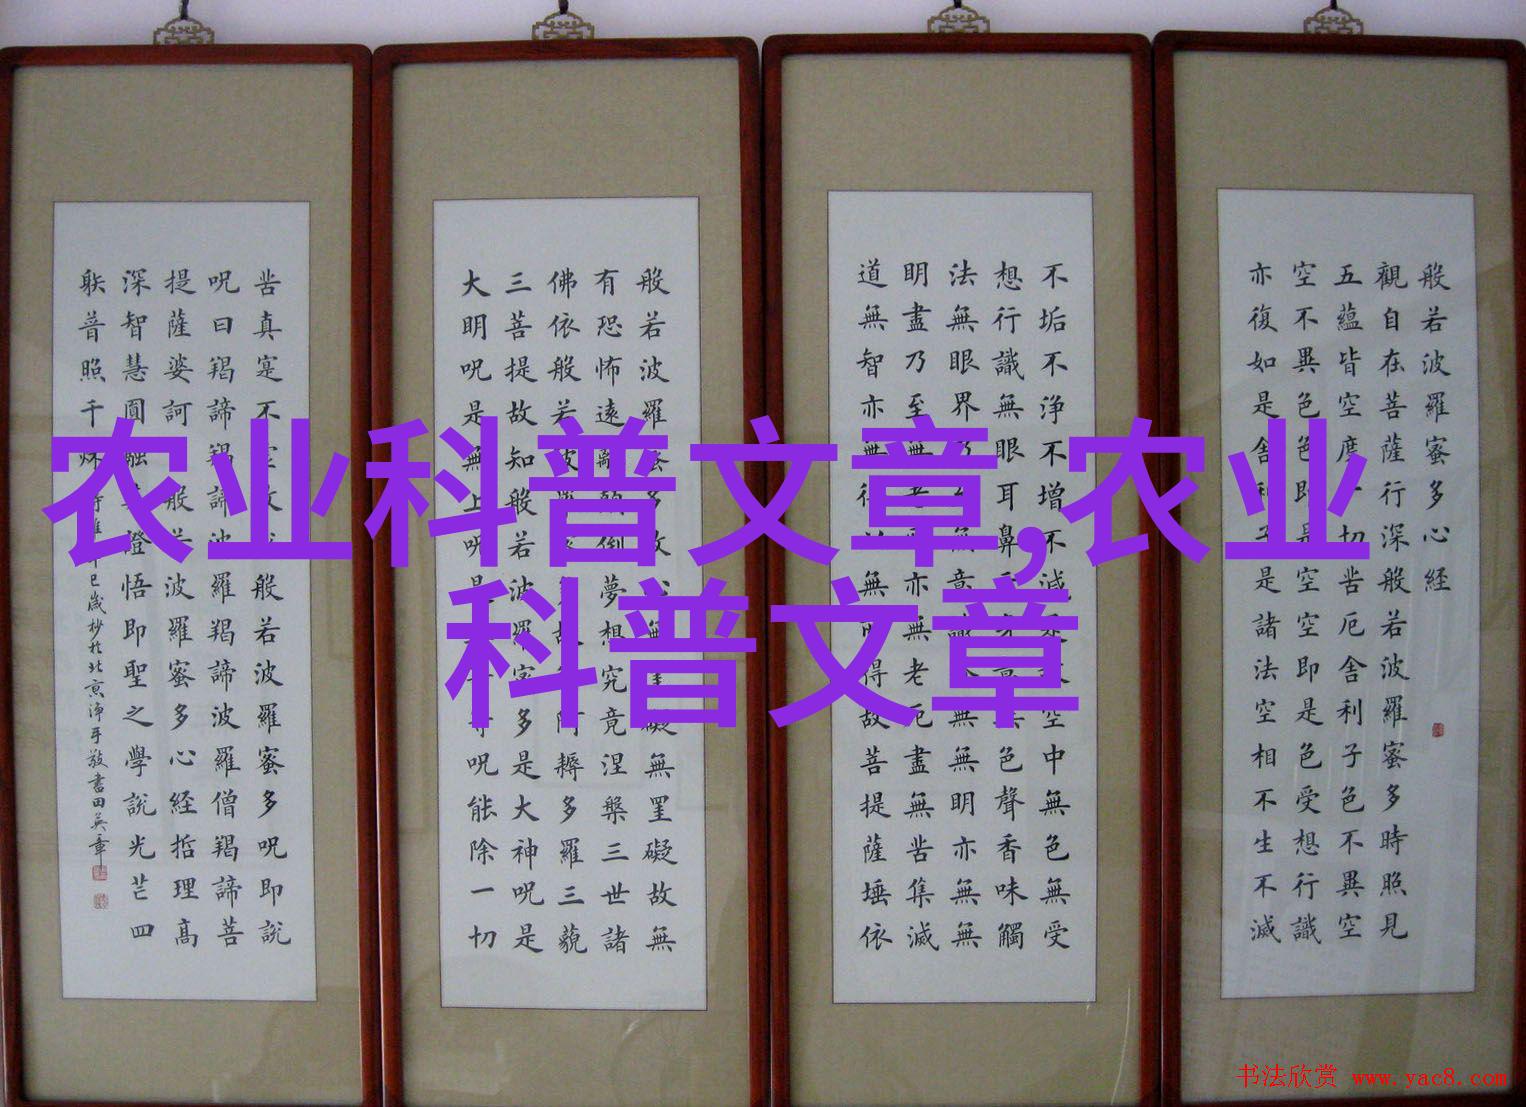 农业科普文章,农业
科普文章
般若波羅蜜多心経
觀自在菩薩行深般若波羅蜜多時照見
五蘊皆空度一切苦厄舍利子色不異空
空不異色色即是空空即是色受想行識
亦復如是舍利子是諸法空相不生不滅
不垢不浄不增不減是故空中無色無受
想行識無眼耳鼻舌身意無色聲香味觸
法無眼界乃至無意識界無無明亦無無
明盡乃至無老死亦無老死盡無苦集滅
道無智亦無得以無所得故菩提薩埵依
般若波羅蜜多故心無罣礙無罣礙故無
有恐怖遠離顛倒夢想究竟涅槃三世諸
佛依般若波羅蜜多故阿耨多羅三藐
三菩提故知般若波羅蜜多是大神呪是
大明呪是無上呪是無等等呪能除一切
苦真寔不空故說般若波羅蜜多呪即說
呪曰羯諦羯諦波羅羯諦波羅僧羯諦菩
提薩婆訶般若波羅蜜多心経哲理高
深智慧圓融證悟即聖之學說光芒四
躲普照千秌時維巳歲杪於北京淨平敬書田英章
书法欣赏 www.yac8.com